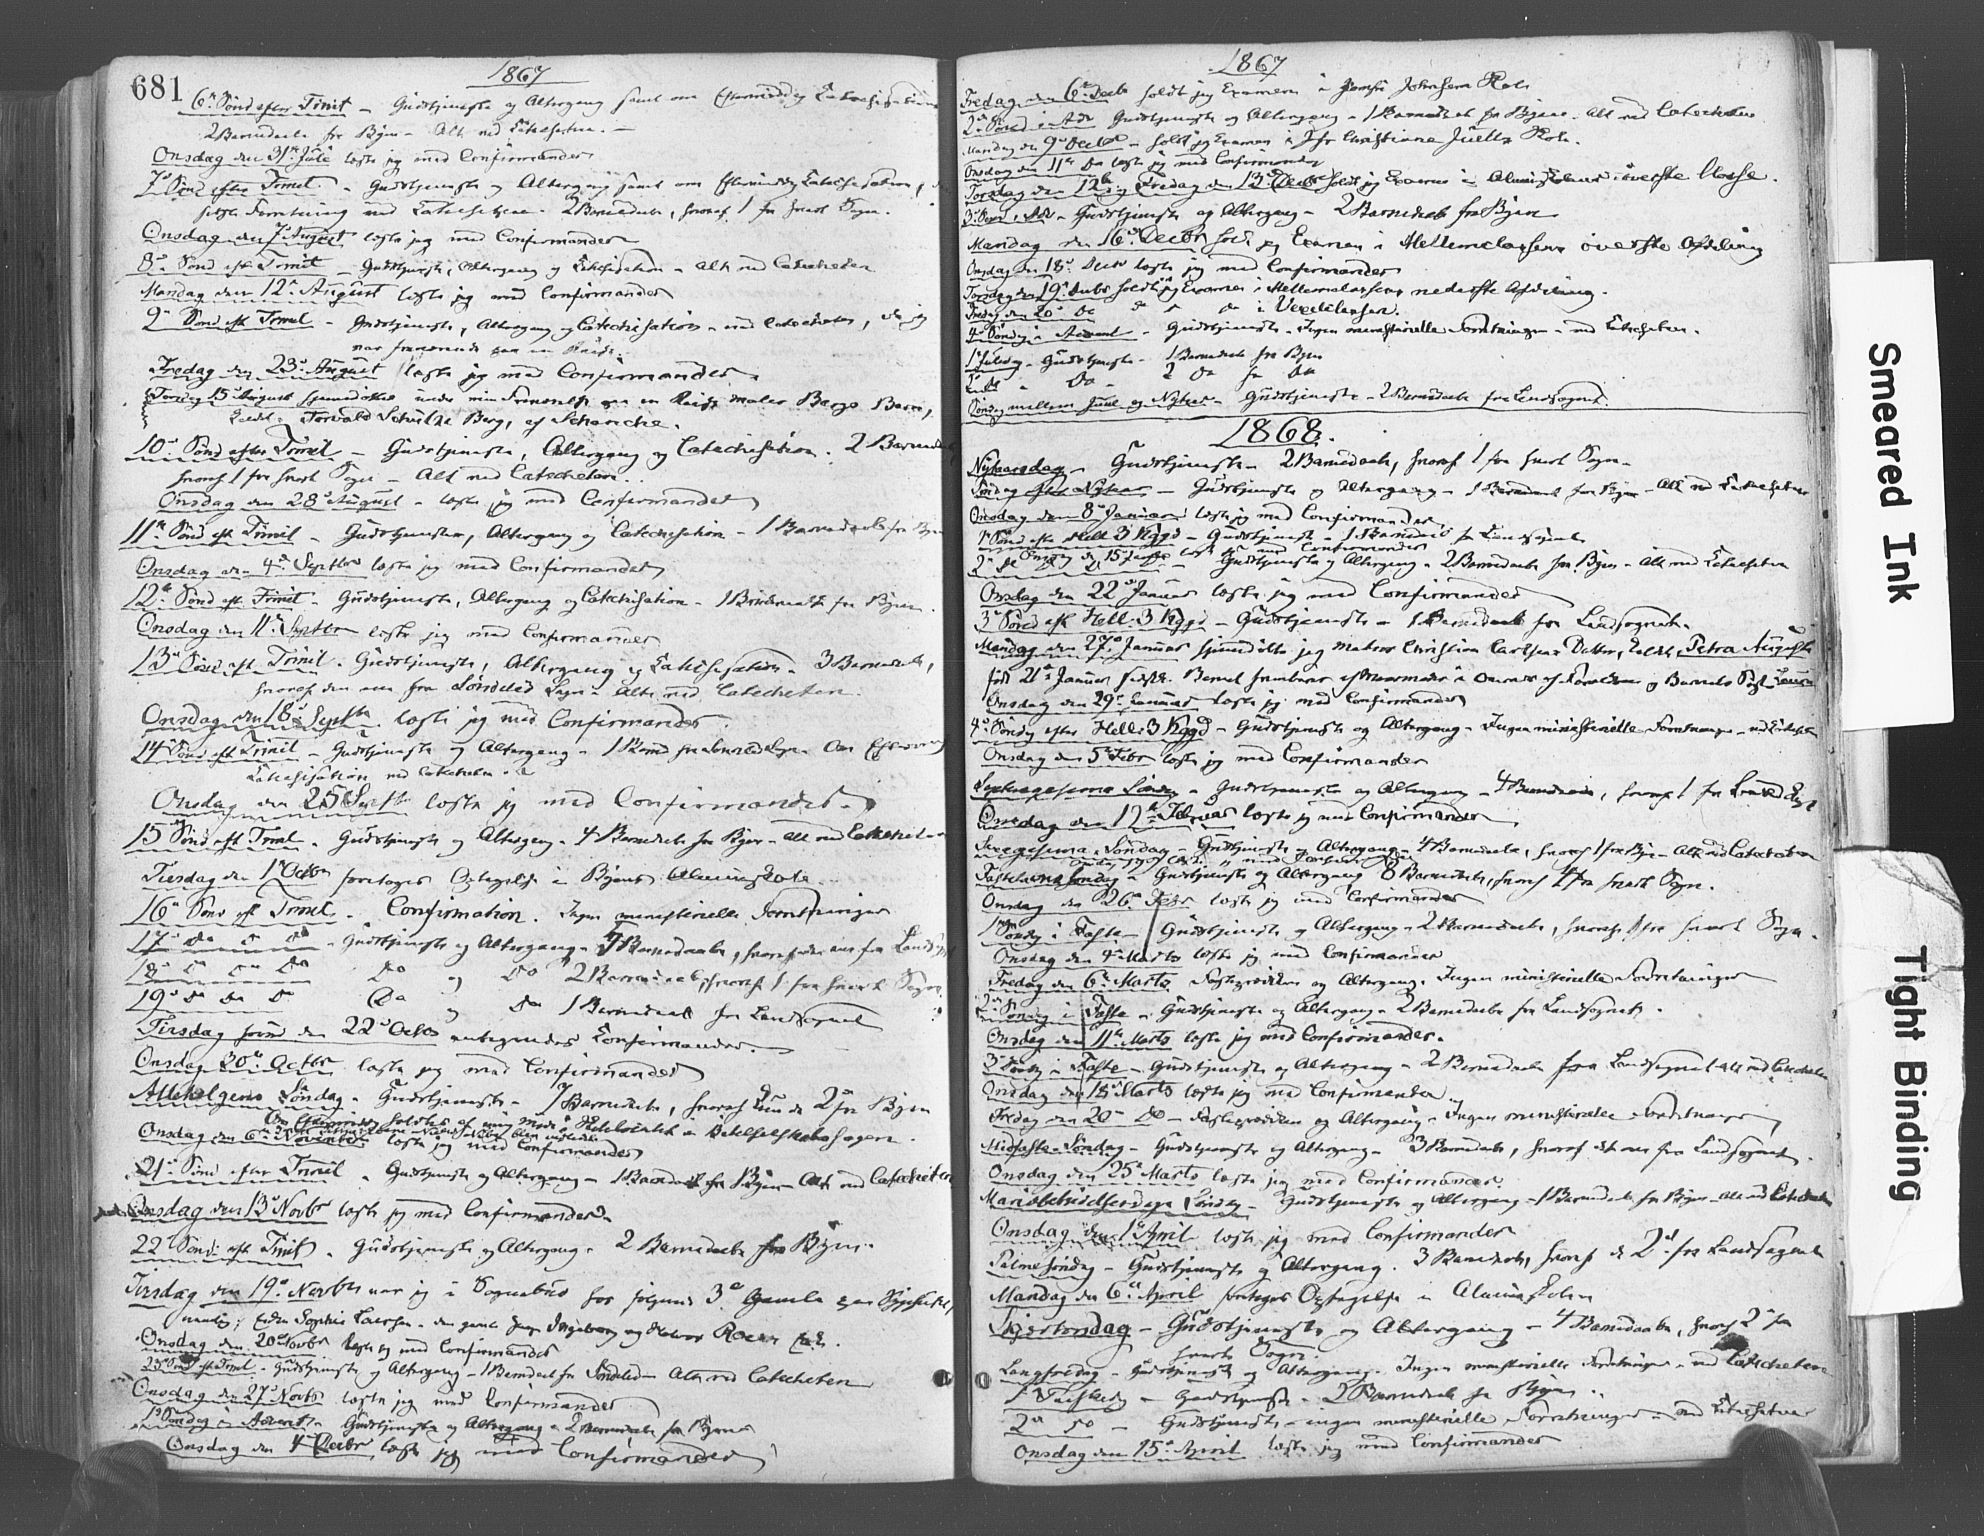 681
1867
6te Sønd efter Trinit - Gudstjeneste og Altergang samt om Eftermiddag Catechisation
2 Barnedaab fra Byen - Alt ved Catecheten. -
Onsdag den 31te Julii læste jeg med Confirmander
7de Sønd efter Trinit. - Gudstjeneste og Altergang samt om Eftermiddag Catechisation,
Forretning ved Catecheten - 2 Barnedaab, hvoraf 1 fra hvert Sogn.
Onsdag den 7de August læste jeg med Confirmander
8de Sønd eft Trinit - Gudstjeneste, Altergang og Catechisation - Alt ved Catecheten
Mandag den 12te August læste jeg med Confirmander
9de Sønd eft Trinit - Gudstjeneste, Altergang og Catechisation - ved Catecheten, da jeg
var fraværende paa en Reise.
Fredag den 23de August læste jeg med Confirmander.
Torsdag 15de August hjemmedøbt under min Fraværelse paa en Reise Maler Bergs Barn,
kaldt Torvald Schultze Berg, af Schanche.
10de Sønd efter Trinit - Gudstjeneste, Altergang og Catechisation. 2 Barnedaab
hvoraf 1 fra hvert Sogn - Alt ved Catecheten.
Onsdag den 28de August - læste jeg med Confirmander
11te Sønd eft Trinit - Gudstjenesten, Altergang og Catechisation - 1 Barnedaab fra Byen
Onsdag den 4de Septbr læste jeg med Confirmander
12te Sønd eft Trinit - Gudstjeneste, Altergang og Catechisation - 1 Barnedaab fra Byen.
Onsdag den 11te Septbr læste jeg med Confirmander
13de Sønd eft Trinit - Gudstjeneste, Altergang og Catechisation - 3 Barnedaab,
hvoraf den ene fra Søndeled Sogn - Alt ved Catecheten.
Onsdag den 18de Septbr læste jeg med Confirmander
14de Sønd eft Trinit - Gudstjeneste og Altergang - 1 Om Eftermiddag
Catechisation ved Catecheten.
Onsdag den 25 Septbr læste jeg med Confirmander.
15de Sønd eft Trinit - Gudstjeneste og Altergang - 4 Barnedaab fra Byen - Alt ved Catecheten
Tirsdag den 1te Octbr foretoges Optagelse i Byens Almueskole.
16de Sønd eft Trinit - Confirmation. Ingen ministerielle Forretninger
17de do do do - Gudstjeneste og Altergang - 7 Barnedaab, hvoraf den ene fra Landsognet
18de do do do do og do 2 Barnedaab, hvoraf 1 fra hvert Sogn.
19de do do do do og do 1 Barnedaab fra Landsognet
Tirsdag den 22de Octbr antegnedes Confirmander.
Onsdag 30te Octbr læste jeg med Confirmander
Allehelgens Søndag - Gudstjeneste - 7 Barnedaab, hvoraf kun de 2 fra Byen
Om Eftermiddag holdtes af mig Møde i Bibelselskabssagen.
Onsdag den 6te November læste jeg med Confirmander
21de Sønd efter Trinit - Gudstjeneste og Altergang - 1 Barnedaab fra Byen - Alt ved Catecheten
Onsdag den 13de Novbr læste jeg med Confirmander.
22de Sønd eft Trinit - Gudstjeneste og Altergang - 2 Barnedaab fra Byen.
Tirsdag den 19de Novbr var jeg i Sognebud hos følgende 3de Gamle paa
nemlig;
Onsdag den 20de Novbr læste jeg med Confirmander
23de Sønd eft Trinit - Gudstjeneste og Altergang - 1 Barnedaab fra Søndeled - Alt ved Catecheten
Onsdag den 27de Novbr læste jeg med Confirmander
1te Søndag i Advent - Gudstjeneste og Altergang - 2 Barnedaab fra Byen
Onsdag den 4de Decbr læste jeg med Confirmander
1867
Fredag den 6te Decbr holdt jeg Examen i Jomfr Johnsens Skole
2den Sønd i Adv Gudstjeneste og Altergang - 1 Barnedaab fra Byen. Alt ved Catecheten
Mandag den 9de Decbr - holdt jeg Examen i Jfr Christiane Juells Skole.
Onsdag den 11te do læste jeg med Confirmander
Torsdag den 12te og Fredag den 13de Decbr holdt jeg Examen i Almueskolens øverste Classe.
3de Sønd i Adv - Gudstjeneste og Altergang - 2 Barnedaab fra Byen
Mandag den 16de Decbr holdt jeg Examen i Mellemclassens øverste Afdeling
Onsdag den 18de Decbr læste jeg med Confirmander
Torsdag den 19de Decbr holdt jeg Examen i Mellemclassens nederste Afdeling.
Fredag den 20de do do do i
4de Søndag i Advent - Gudstjeneste - Ingen ministerielle Forretninger - ved Catecheten.
1te Juledag - Gudstjeneste - 1 Barnedaab fra Byen
2den do - do - 2 do fra do
Søndag mellem Juul og Nytaar - Gudstjeneste - 2 Barnedaab fra Landsognet.
1868.
Nytaarsdag - Gudstjeneste - 2 Barnedaab, hvoraf 1 fra hvert Sogn.
Søndag efter Nytaar - Gudstjeneste og Altergang - 1 Barnedaab fra Byen - Alt ved Catecheten
Onsdag den 8de Januar læste jeg med Confirmander
1te Sønd eft Hell 3 Kgd - Gudstjeneste - 1 Barnedaab fra Landsognet
Onsdag den 15 Januar læste jeg med Confirmander
2den do - Gudstjeneste og Altergang - 2 Barnedaab fra Byen - Alt ved Catecheten
Onsdag den 22de Januar læste jeg med Confirmander
3de Sønd eft Hell: 3 Kgd - Gudstjeneste - 1 Barnedaab fra Landsognet.
Mandag den 27de Januar hjemmedøbte jeg Matros Christian Carlsens Datter, kaldt Petra Auguste
født 21de Januar
Onsdag den 29de Januar læste jeg med Confirmander
4de Søndag efter Hell: 3 Kgd - Gudstjeneste og Altergang - Ingen ministerielle Forretninger - ved Catecheten
Onsdag den 5te Febr læste jeg med Confirmander
Septuagesima Søndag - Gudstjeneste og Altergang - 4 Barnedaab, hvoraf 1 fra
Onsdag den 12te Februar læste jeg med Confirmander
Sexagesima Søndag - Gudstjeneste og Altergang - 4 Barnedaab, hvoraf 1 fra Byen - Alt ved Catecheten
Onsdag 19de læste jeg med Confirmander
Fastelavns Søndag - Gudstjeneste og Altergang 8 Barnedaab, hvoraf 4 fra hvert Sogn.
Onsdag den 26de Febr læste jeg med Confirmander
1te Søndag i Faste - Gudstjeneste og Altergang - 2 Barnedaab, hvoraf 1 fra hvert Sogn.
Onsdag den 4de Marts læste jeg med Confirmander
Fredag den 6te Marts. Fasteprædiken og Altergang. Ingen ministerielle Forretninger
2den Søndag i Faste - Gudstjeneste og Altergang - 2 Barnedaab fra Landsognet.
Onsdag den 11te Marts læste jeg med Confirmander.
3de Søndag i Faste - Gudstjeneste og Altergang - 2 Barnedaab fra Landsognet Alt ved Catecheten
Onsdag den 18de Marts læste jeg med Confirmander
Fredag den 20de do - Fasteprædiken og Altergang - Ingen ministerielle Forretninger
Midfaste Søndag - Gudstjeneste og Altergang - 3 Barnedaab, hvoraf det ene fra Landsognet.
Onsdag den 25de Marts læste jeg med Confirmander.
Mariæ Bebudelsesdags Søndag - Gudstjeneste og Altergang - 1 Barnedaab fra Byen - Alt ved Catecheten
Onsdag den 1te April læste jeg med Confirmander
Palmesøndag - Gudstjeneste og Altergang. 3 Barnedaab, hvoraf de 2de fra Landsognet
Mandag den 6te April foretoges Optagelse i Almueskolen
Skjærtorsdag - Gudstjeneste og Altergang - 4 Barnedaab, hvoraf 2de fra
hvert Sogn
Langfredag - Gudstjeneste og Altergang. Ingen ministerielle Forretninger - ved Catecheten
1te Paaskedag - Gudstjeneste - 2 Barnedaab fra Byen.
2den do - Gudstjeneste - ingen ministerielle Forretninger - ved Catecheten
Onsdag den 15de April læste jeg med Confirmander
Smeared Ink
Tight Binding